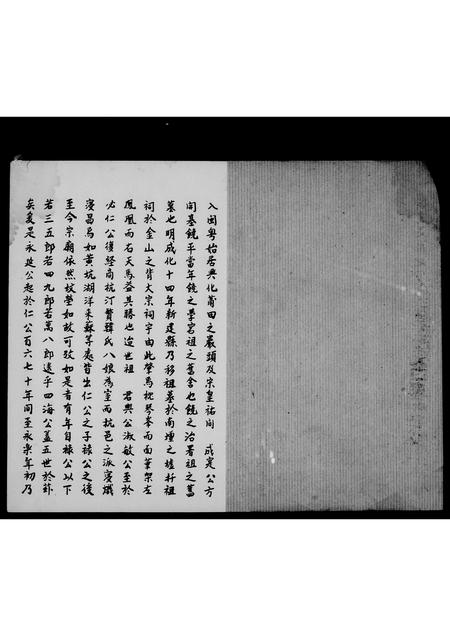 入閩粵始居興化莆田之巖頭及宋皇祐間 成定公方
開基饒平當年饒之學宮祖之舊舍也饒之治署祖之舊
墓也明成化十四年新建縣乃移祖墓於南壇之墟杆祖
祠於金山之背大宗祠宇由此肇焉枕琴峯而面筆架左
鳳凰而右天馬益其勝也迨世祖 君與公淑敏公至於
必仁公復經商杭汀贅韓氏八娘為室而杭邑之派寖熾
寖昌焉如黃坑湖洋來蘇等處皆出仁公之子祿公之後
至今宗廟依然坟塋如故可攷如是者有年自祿公以下
若三五郎若四九郎若萬八郎遠乎四海公蓋五世於茲
矣爰是永延公起於仁公百六七十年間至永樂年初乃